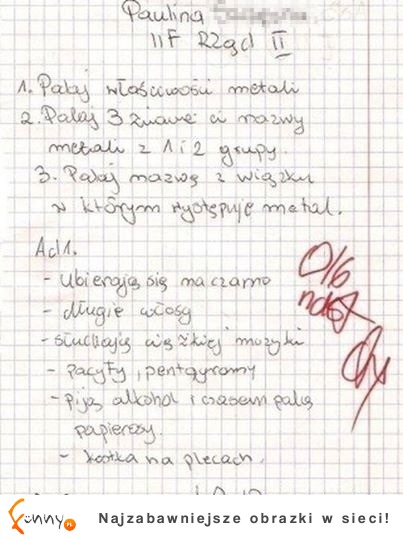 Paulina
IIF Rząd II
1. Podaj właściwości metali
2. Podaj 3 znane ci nazwy
metali z 1 i 2 grupy.
3. Podaj nazwę z wiązku
w którym występuje metal.
Ad1.
- Ubierają się na czarno
- długie włosy
- słuchają ciężkiej muzyki
- pacyfy, pentagramy
- piją alkohol i czasem palą
papierosy
- kostka na plecach.
0/6
ndst
funny.pl
Najzabawniejsze obrazki w sieci!